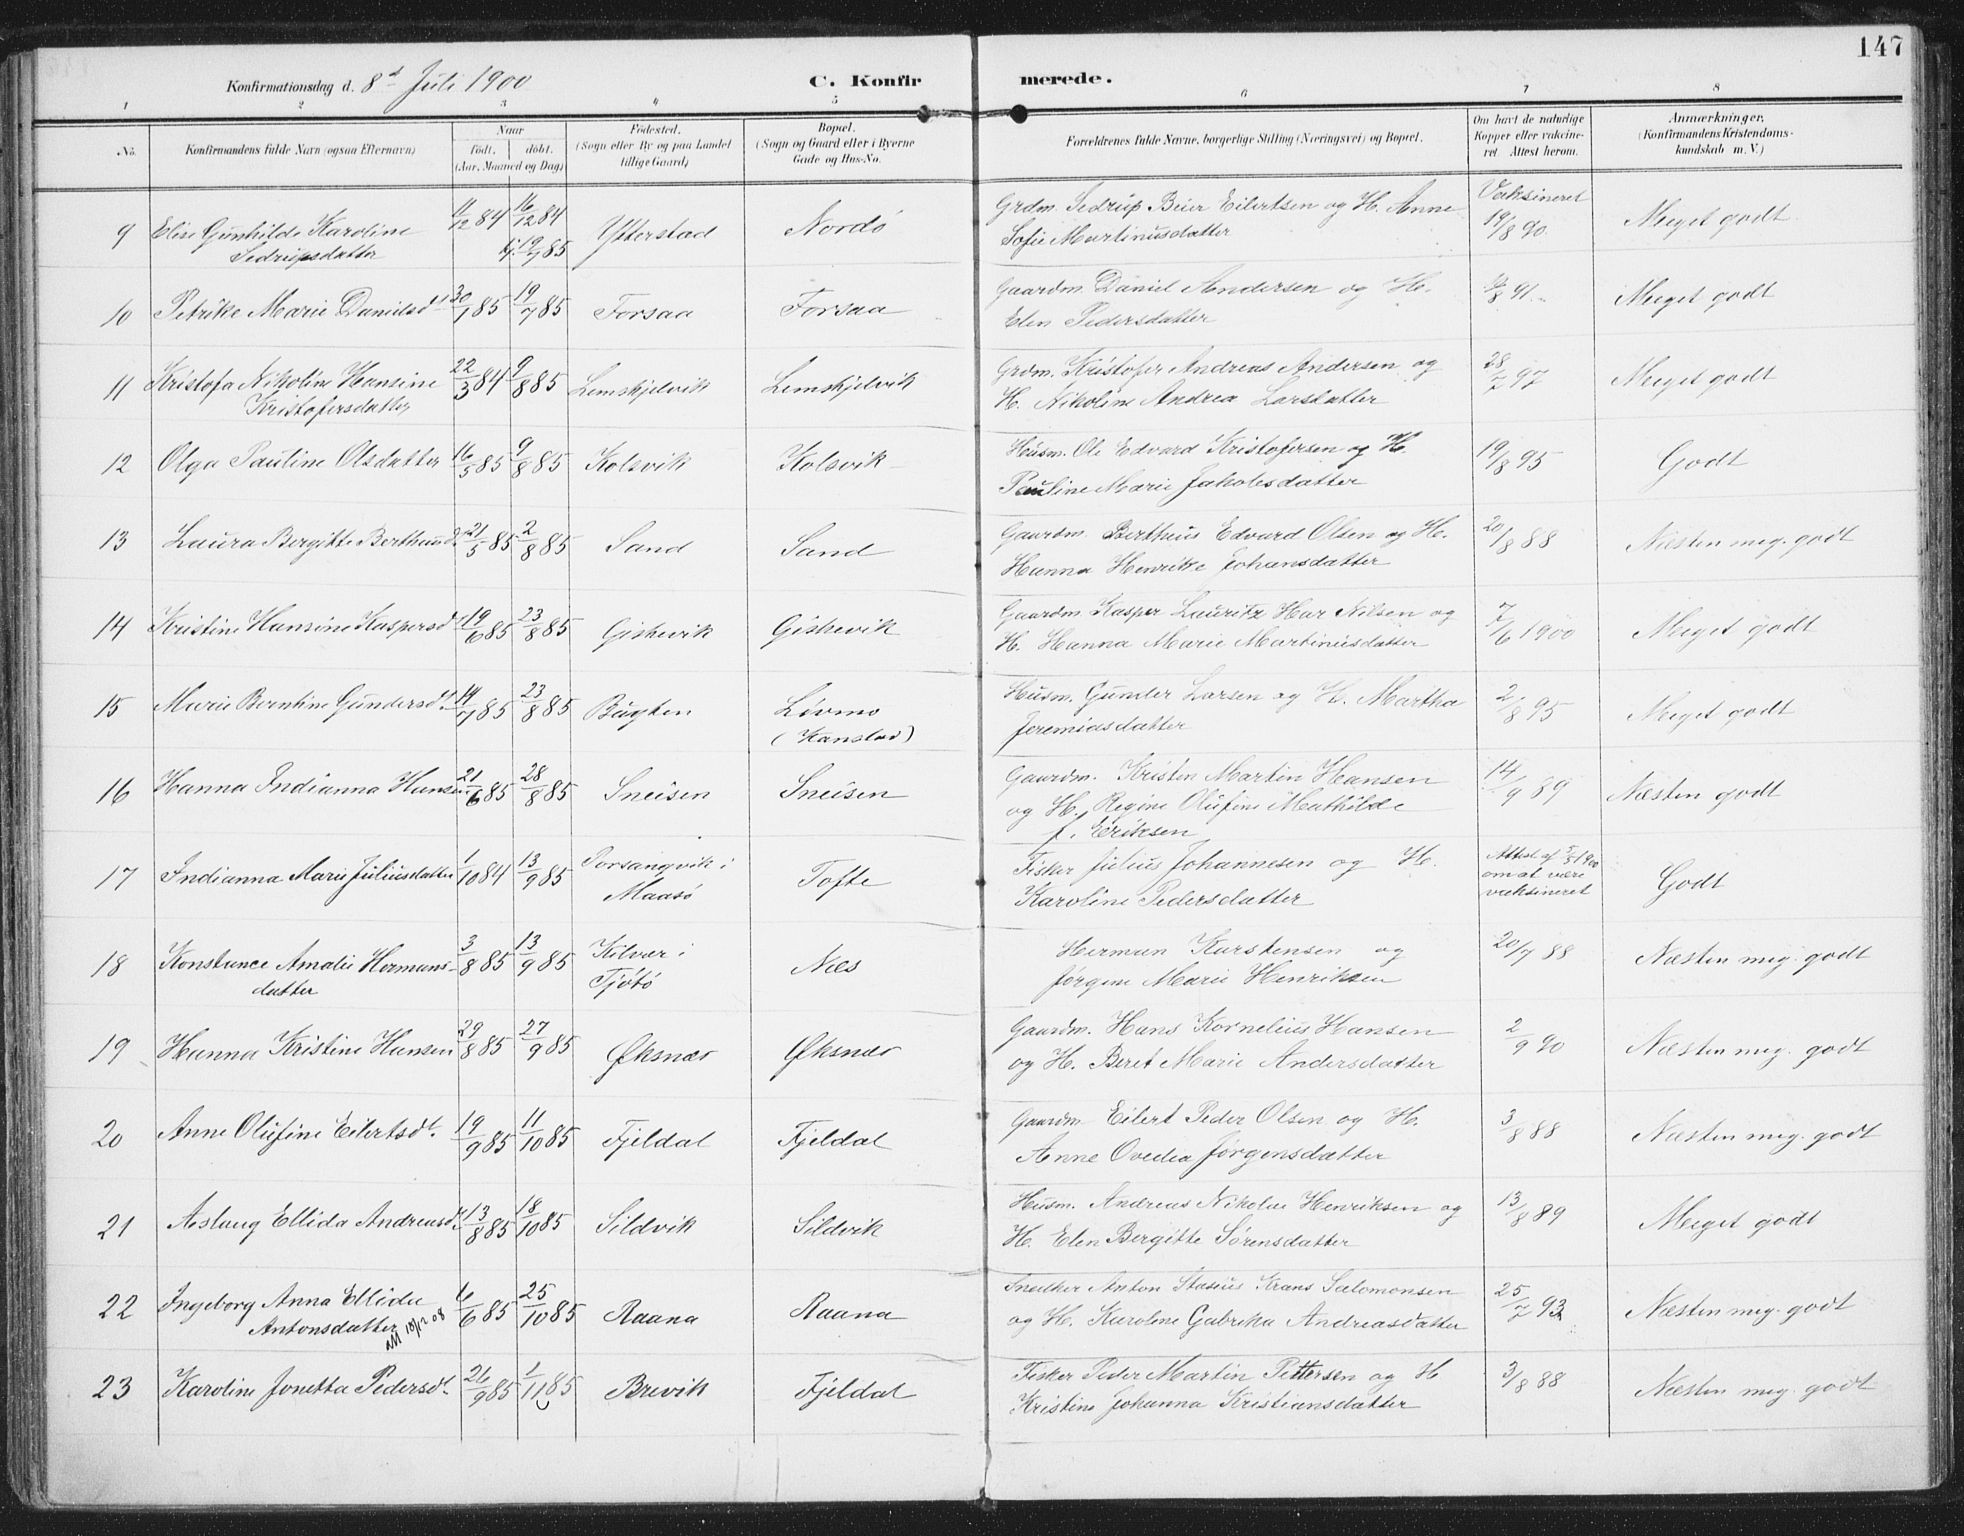 147
Konfirmationsdag d. 8d Juli 1900 C. Konfirmerede.
1 2 3 4 5 6 7 8
No.
Konfirmandens fulde Navn (ogsaa Efternavn)
Naar
födt. döbt.
(Aar, Maaned og Dag)
Födested.
(Sogn eller By og paa Landet
tillige Gaard)
Bopæl.
(Sogn og Gaard eller i Byerne
Gade og Hus-No.
Forældrenes fulde Navne, borgerlige Stilling (Næringsvei) og Bopæl.
Om havt de naturlige
Kopper eller vakcine-
ret. Attest herom.
Anmærkninger,
(Konfirmandens Kristendoms-
kundskab m. V.)
9 Elise Gunhilde Karoline
Sedrupsdatter
11/12 84 16/12 84
kj. 19/7 85
Ytterstad Nordö
Grdm. Sedrup Beier Eilertsen og H. Anne
Sofie Martinusdatter
Vaksineret
19/8 90. Meget godt.
10 Petrikke Marie Danielsdt 30/1 85 19/7 85 Forsaa Forsaa
Gaardm. Daniel Andersen og H.
Elen Pedersdatter
/8 91. Meget godt
11 Kristofa Nikoline Hansine
Kristofersdatter
22/3 84 9/8 85 Lemskjelvik Lemskjelvik
Grdm. Kristofer Andreas Andersen og
H. Nikoline Andrea Larsdatter
28/7 97 Meget godt
12 Olga Pauline Olsdatter 16/5 85 9/8 85 Kolsvik Kolsvik
Husm. Ole Edvard Kristofersen og H.
Pauline Marie Jakobsdatter
19/8 95 Godt
13 Laura Bergitte Bertheusd. 21/5 85 2/8 85 Sand Sand
Gaardm. Bertheus Edvard Olsen og H.
Hanna Henrikke Johansdatter
20/8 88 Næsten meg. godt
14 Kristine Hansine Kaspersdt 19/6 85 23/8 85 Gishevik Gishevik
Gaardm. Kasper Lauritz Har Nilsen og
H. Hanna Marie Martinusdatter
7/6 1900 Meget godt
15 Marie Berntine Gundersdt. 14/7 85 23/8 85 Bugten Lövmo
(Kanstad)
Husm. Gunder Larsen og H. Martha
Jeremiasdatter
2/8 95 Meget godt
16 Hanna Indianna Hansen 21/6 85 28/8 85 Sneisen Sneisen
Gaardm. Kristen Martin Hansen
og H. Regine Olufine Mathilde
f. Eriksen
14/9 89 Næsten godt
17 Indianna Marie Juliusdatter 1/10 84 13/9 85 Porsangvik i
Maasö
Tofte
Fisker Julius Johannesen og H.
Karoline Pedersdatter
Attest af 7/5 1900
om at være
vaksineret
Godt
18 Konstance Amalie Hermans-
datter
3/8 85 13/9 85 Kilvær i
Tjötö
Næs
Herman Karstensen og
Jørgine Marie Henriksen
20/7 88 Næsten meg. godt
19 Hanna Kristine Hansen 29/8 85 27/9 85 Øksnær Øksnær
Gaardm. Hans Kornelius Hansen
og H. Beret Marie Andersdatter
2/9 90 Næsten meg. godt
20 Anne Olufine Eilertsdt. 19/9 85 11/10 85 Fjeldal Fjeldal
Gaardm Eilert Peder Olsen og H.
Anne Ovedia Jørgensdatter
3/8 88 Næsten meg. godt
21 Aslaug Ellida Andreasdt. 13/8 85 18/10 85 Sildvik Sildvik
Husm. Andreas Nikolai Henriksen og
H. Elen Bergitte Sörensdatter
13/8 89 Meget godt
22 Ingeborg Anna Ellida
Antonsdatter
att 18/12 08
6/6 85 25/10 85 Raana Raana
Snedker Anton Stasius Krans Salomonsen
og H. Karoline Gabrika Andreasdatter
25/7 93 Næsten meg. godt
23 Karoline Jonetta Pedersdt. 26/9 85 1/11 85 Brevik Fjeldal
Fisker Peder Martin Pettersen og H
Kristine Johanna Kristiansdatter
3/8 88 Næsten meg. godt